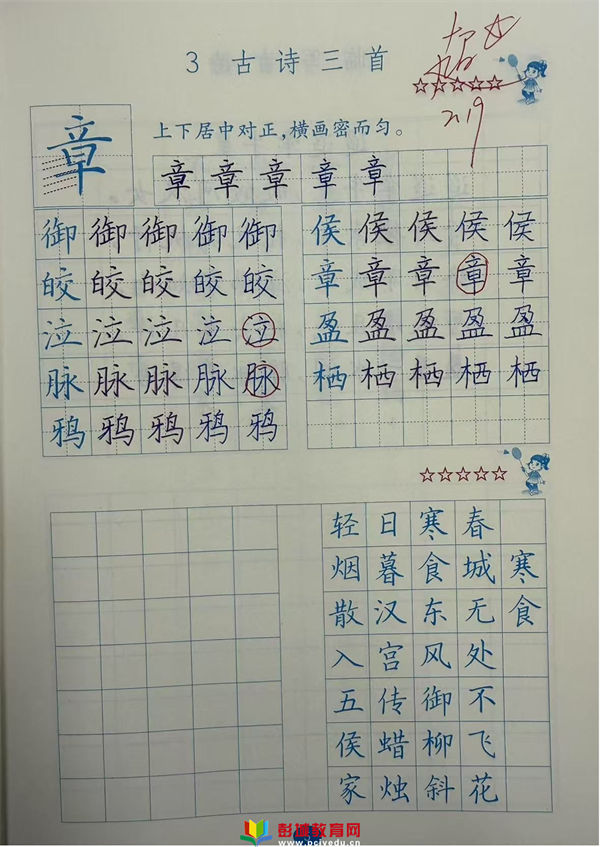 3 古诗三首
2.19
章
上下居中对正，横画密而匀。
章 章 章 章 章
御 御 御 御 御
皎 皎 皎 皎 皎
泣 泣 泣 泣 泣
脉 脉 脉 脉 脉
鸦 鸦 鸦 鸦 鸦
侯 侯 侯 侯 侯
章 章 章 章 章
盈 盈 盈 盈 盈
栖 栖 栖 栖 栖
寒食
春城无处不飞花
寒食东风御柳斜
日暮汉宫传蜡烛
轻烟散入五侯家
彭城教育网